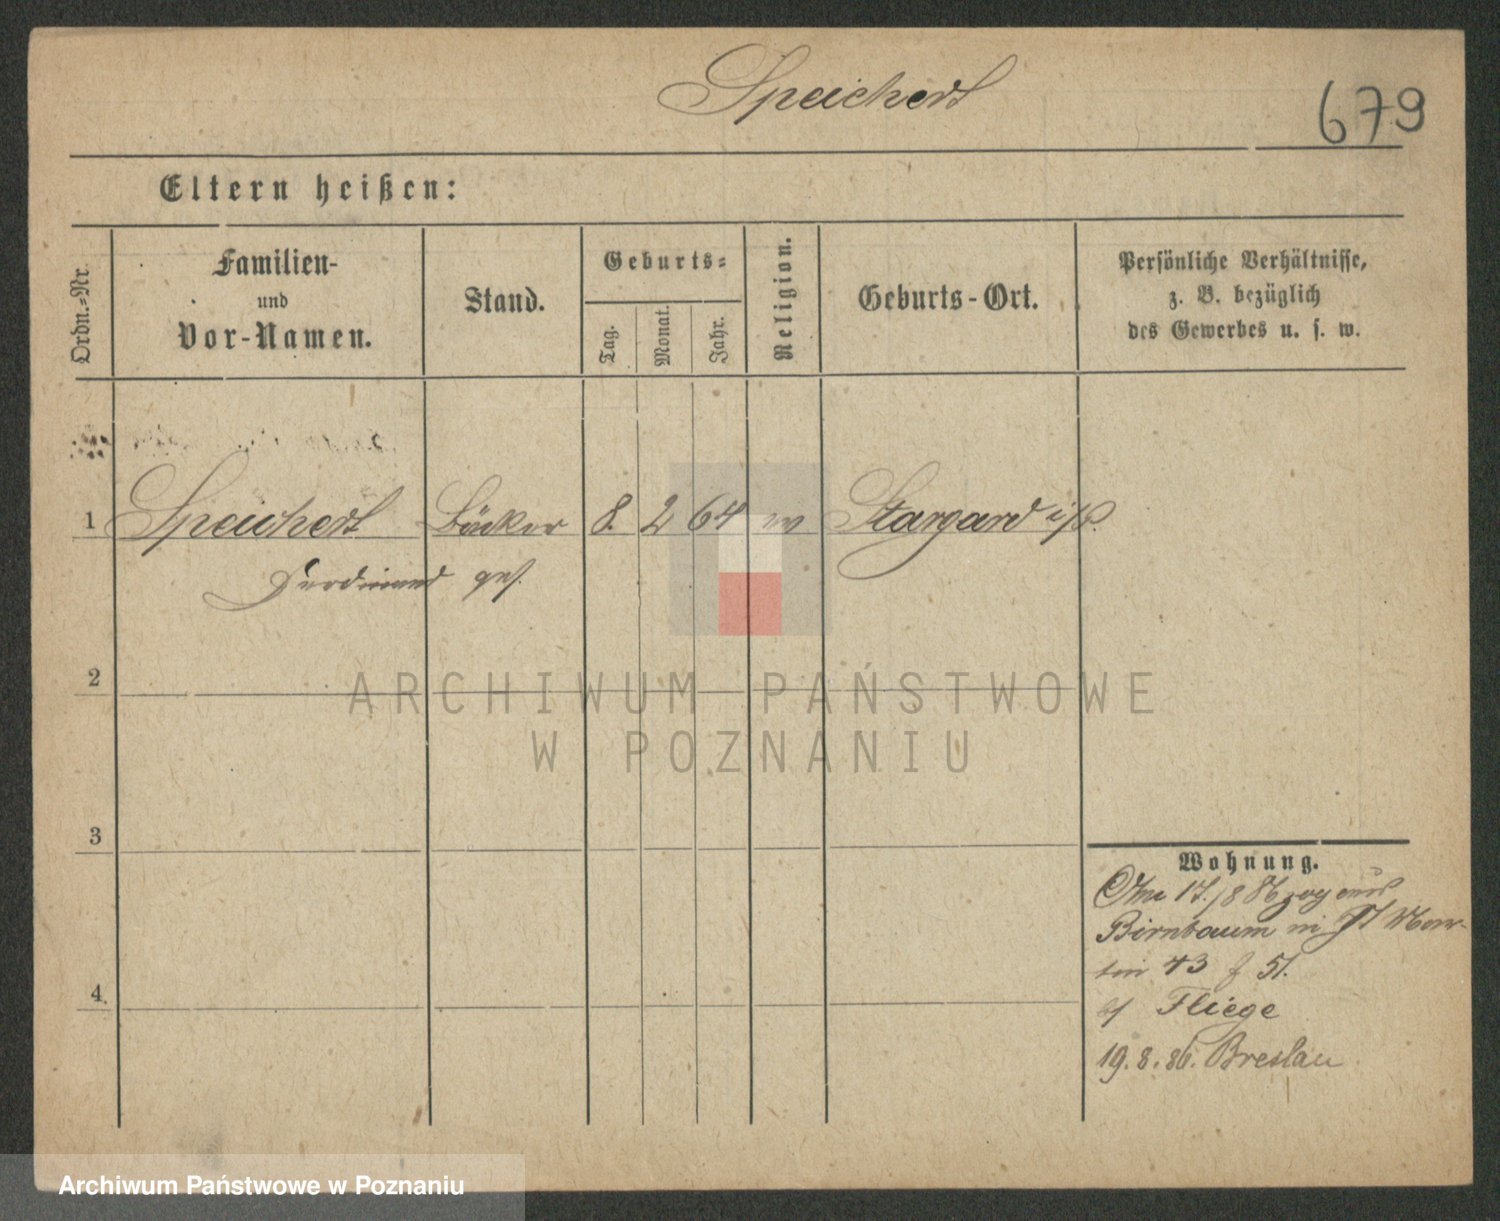 Speichert
679
Eltern heißen:
Ordn.=Nr.
Familien-
und
Vor-Namen.
Stand.
Geburts=
Tag.
Monat.
Jahr.
Religion.
Geburts-Ort.
Persönliche Verhältnisse,
z. B. bezüglich
des Gewerbes u. s. w.
1 Speichert Bäcker 8 2 64 Stargard i/P.
Ferdinand
2
ARCHIWUM PAŃSTWOWE
W POZNANIU
3
4.
Wohnung.
Am 17./8 86 zog aus
Birnbaum in St Mar-
tin 43
Fliege
19.8.86. Breslau
Archiwum Państwowe w Poznaniu